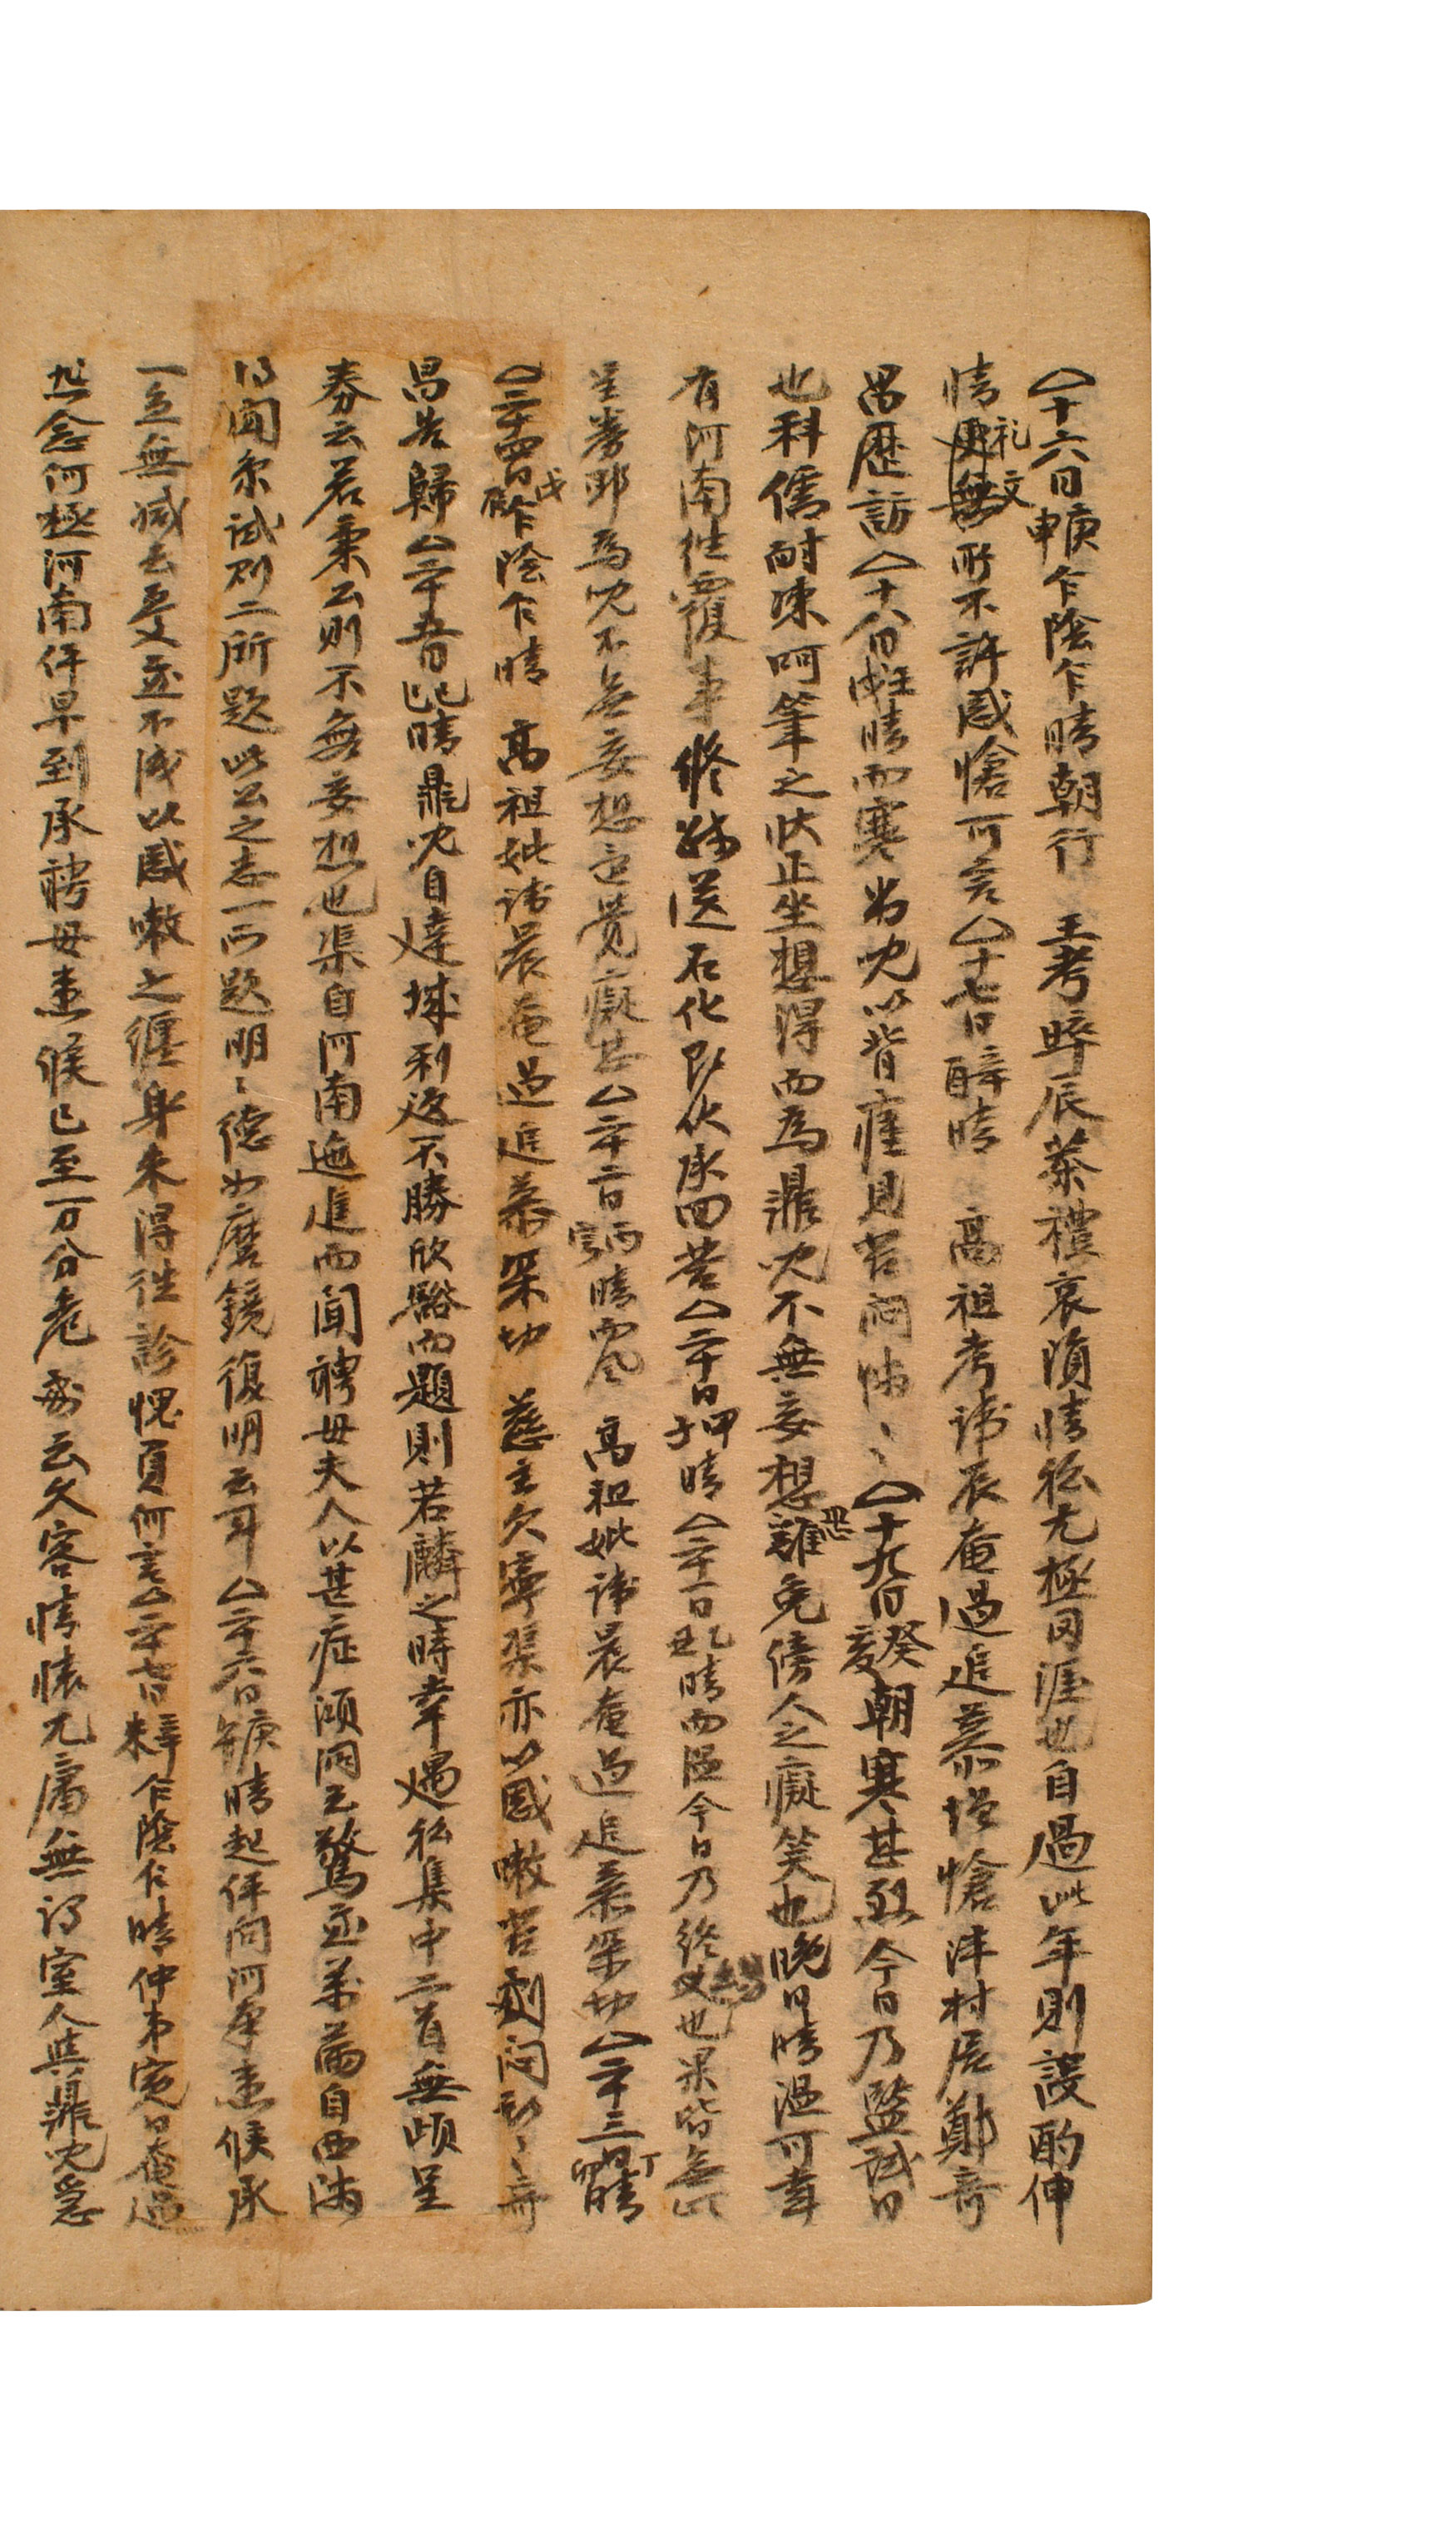 △十六日庚申乍陰乍晴朝行 王考晬辰茶禮哀隕情私尤極罔涯也自過此年則設酌伸
情礼文所不許感愴可言△十七日辛酉晴 高祖考諱辰奄過追慕增愴洋村居鄭奇
昌歷訪△十八日壬戌晴而寒当児以背瘇見苦悶怖ヽ△十九日癸亥朝寒甚烈今日乃監試日
也科儒耐凍呵筆之狀正坐想得而為鼎児不無妄想難免傍人之癡笑也晩日晴溫可幸
有河南往覆事修 送石化即伏承回答△二十日甲子晴△二十一日乙丑晴而溫今日乃終場也果皆無
呈券耶為児不無妄想還覺癡甚△二十二日丙寅晴而風 高祖妣諱晨奄過追慕采切△二十三日丁卯晴
△二十四日戊辰乍陰乍晴 高祖妣諱晨奄過追慕采切 慈主欠寧渠亦以感嗽苦劇悶ヽ奇
昌告歸△二十五日己巳晴鼎児自達城利返不勝欣豁而題則若麟之時幸遇私集中二首無頉呈
券云若秉公則不無妄想也渠自河南迤進而聞聘母夫人以甚症澒洞云驚 自西浦
得聞京試則二所題 公之志一所題明ヽ德如磨鏡復明云耳△二十六日庚午晴起伻問河 患候承
一 無減去 不淺以感嗽之纏身未得往診愧負何言△二十七日辛未乍陰乍晴仲弟 日奄過
 念何極河南伻早到承聘母患候已至一万分危 云久客情懷尤庸無 室人與鼎児急